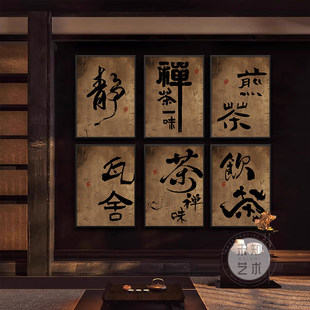 靜
禪
茶
一味
煎
茶
瓦
舍
茶
禅
味
飲
茶
艺术